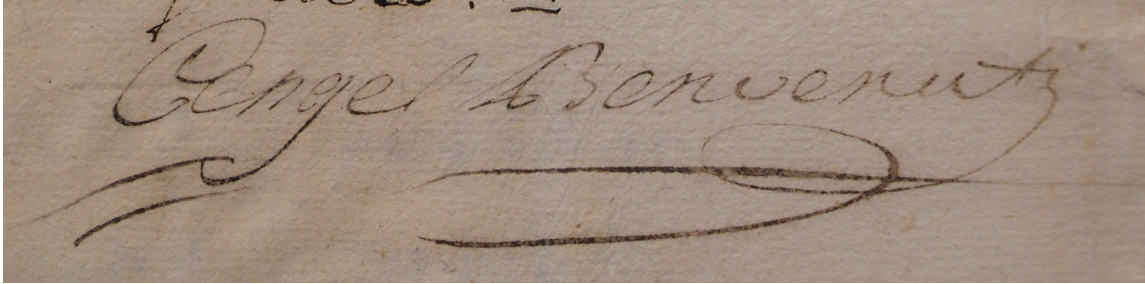 Angel Benvenuti